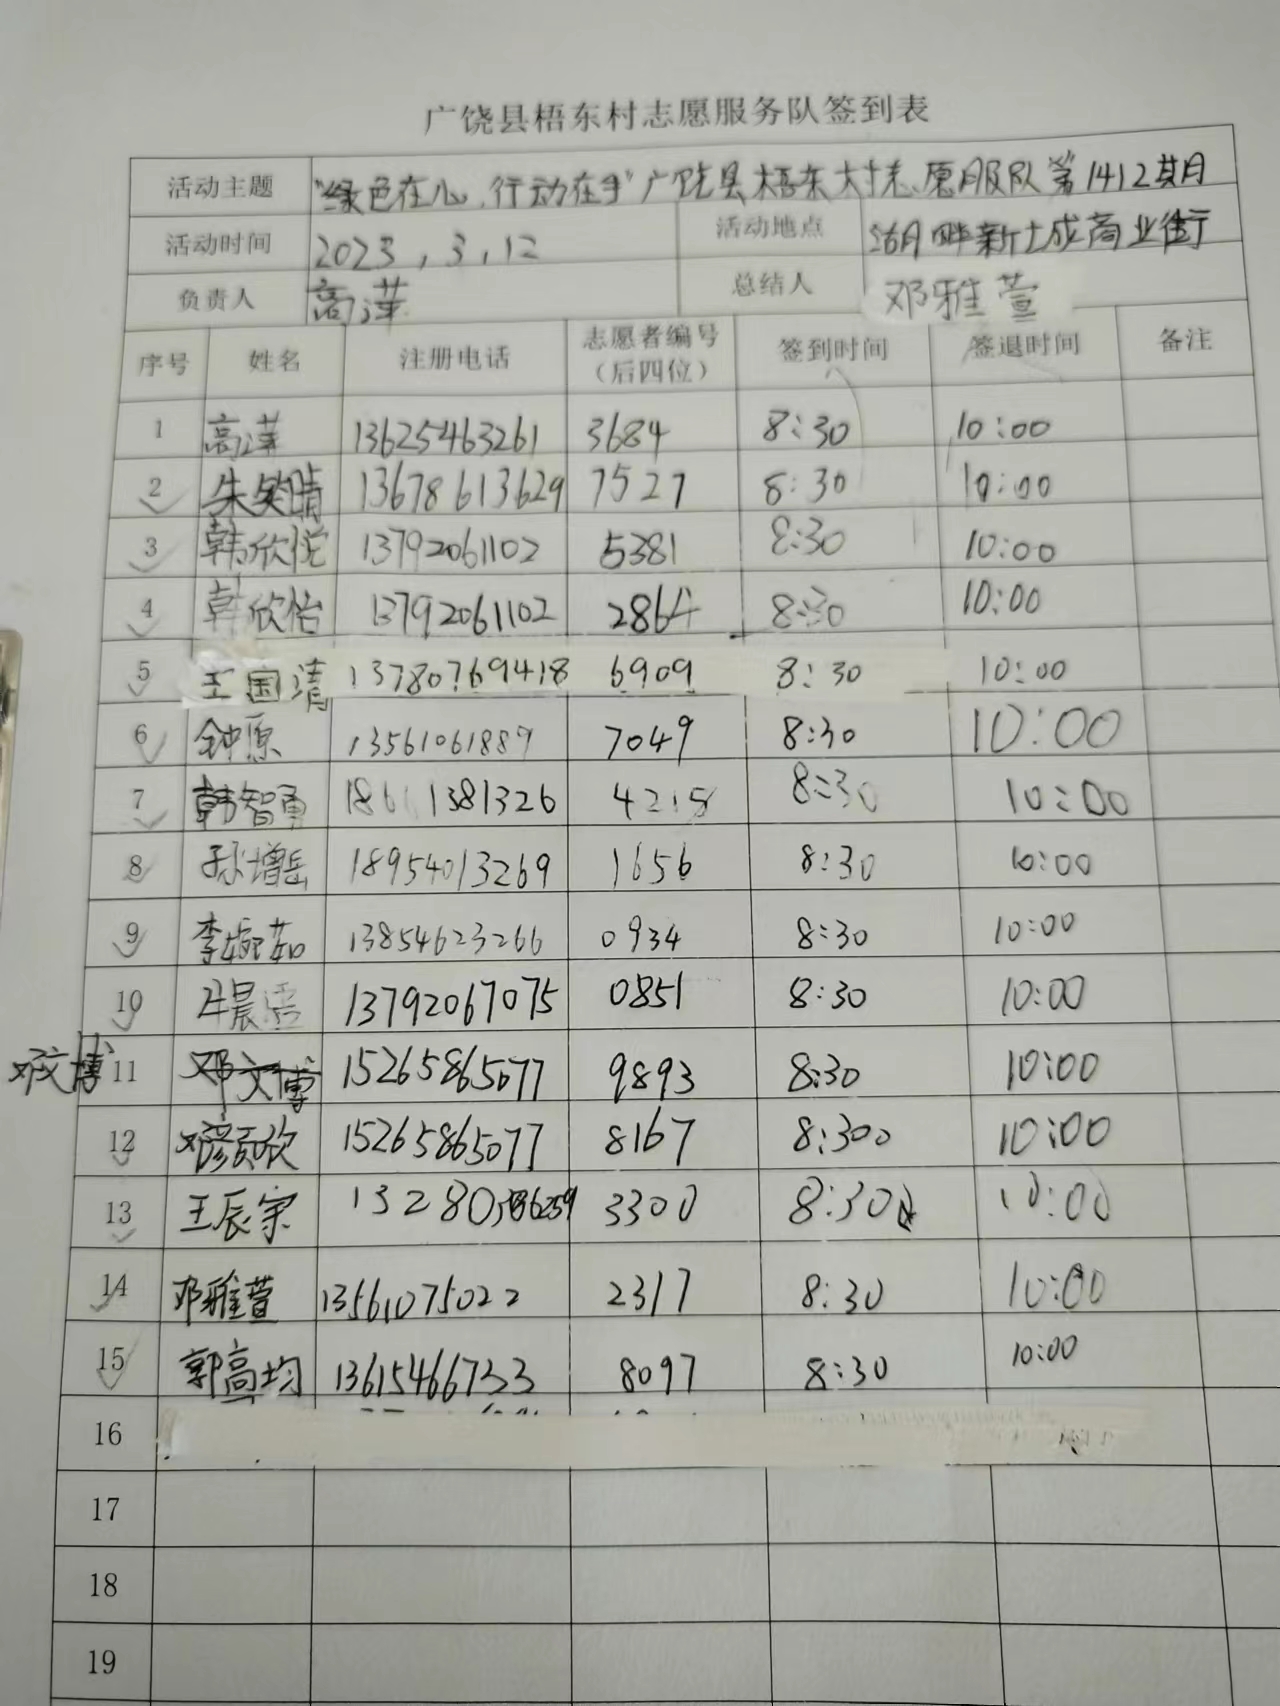 广饶县梧东村志愿服务队签到表
活动主题 "绿色在心,行动在手"广饶县梧东村志愿服队第1412期
活动时间 2023,3,12 活动地点 湖畔新城商业街
负责人 高 总结人 邓雅萱
序号 姓名 注册电话 志愿者编号(后四位) 签到时间 签退时间 备注
1 高 13625463261 3684 8:30 10:00
2 朱笑晴 13678613629 7527 8:30 10:00
3 韩欣悦 13792061102 5381 8:30 10:00
4 韩欣怡 13792061102 2864 8:30 10:00
5 王国清 13780769418 6909 8:30 10:00
6 钟原 13561061887 7049 8:30 10:00
7 韩智勇 1381326 4215 8:30 10:00
8 孙增岳 18954013269 1656 8:30 10:00
9 李婉茹 13854623266 0934 8:30 10:00
10 晨 13792067075 0851 8:30 10:00
邓文博 11 邓文博 15265865077 9893 8:30 10:00
12 邓 欣 15265865077 8167 8:300 10:00
13 王辰宗 13280 6259 3300 8:30 10:00
14 邓雅萱 13561075022 2317 8:30 10:00
15 郭高均 13615466733 8097 8:30 10:00
16
17
18
19